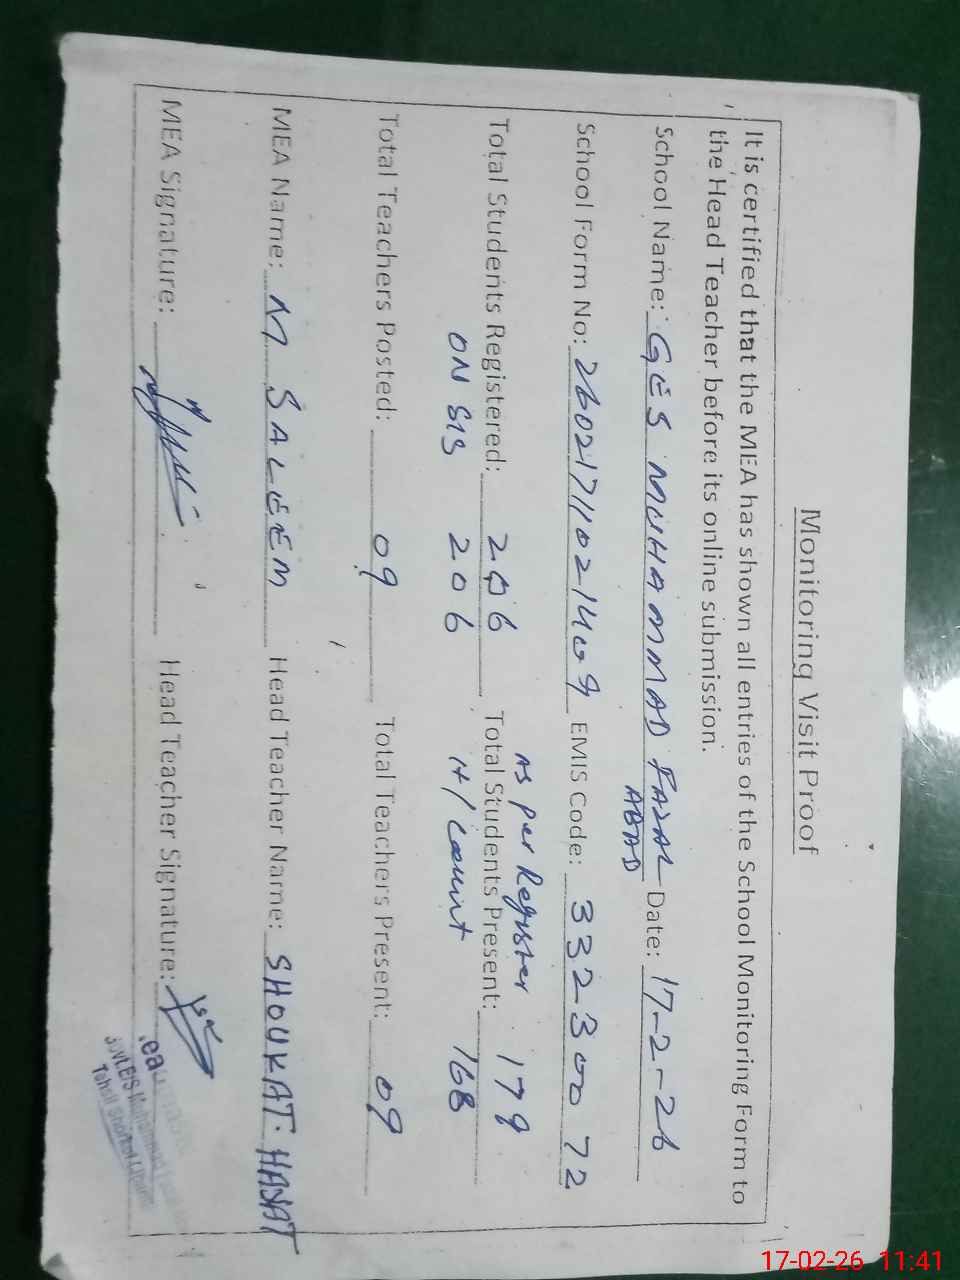 Monitoring Visit Proof
It is certified that the MEA has shown all entries of the School Monitoring Form to
the Head Teacher before its online submission.
School Name: GES MUHAMMAD FAZAL ABAD Date: 17-2-26
School Form No: EMIS Code: 33230072
As per Register 179
Total Students Registered: 206 Total Students Present:
ON SIS 206 H/Count 168
Total Teachers Posted: 09 Total Teachers Present: 09
MEA Name: M SALEEM Head Teacher Name: SHOUKAT HAYAT
MEA Signature: Head Teacher Signature:
17-02-26 11:41